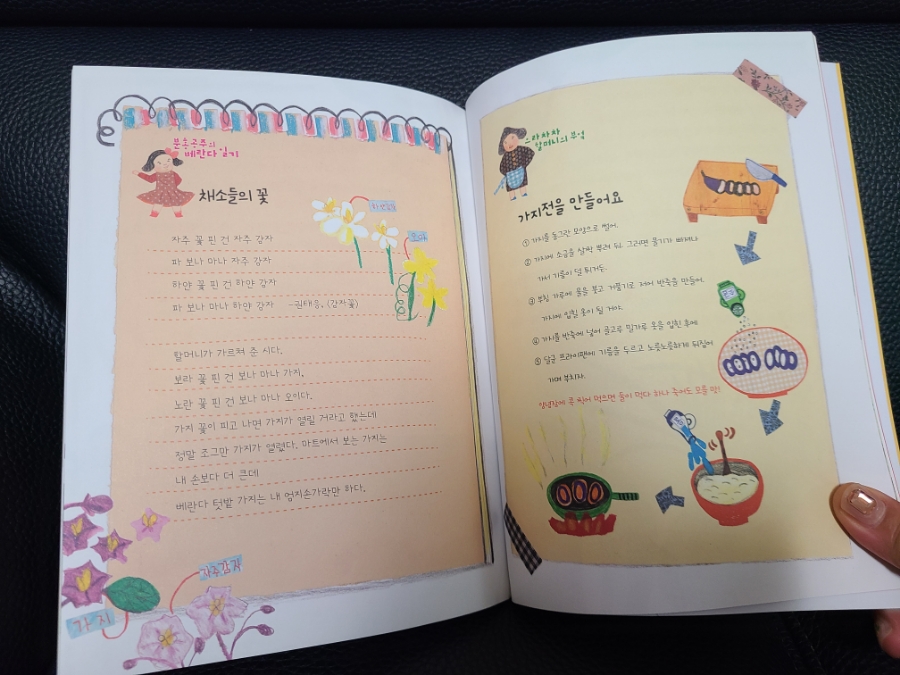 분홍공주의
베란다 일기
채소들의 꽃
자주 꽃 핀 건 자주 감자
파 보나 마나 자주 감자
하얀 꽃 핀 건 하얀 감자
파 보나 마나 하얀 감자 -권태응, 〈감자꽃〉
할머니가 가르쳐 준 시다.
보라 꽃 핀 건 보나 마나 가지.
노란 꽃 핀 건 보나 마나 오이다.
가지 꽃이 피고 나면 가지가 열릴 거라고 했는데
정말 조그만 가지가 열렸다. 마트에서 보는 가지는
내 손보다 더 큰데
베란다 텃밭 가지는 내 엄지손가락만 하다.
오이
가지
자주감자
으라차차
할머니의 부엌
가지전을 만들어요
① 가지를 동그란 모양으로 썰어.
② 가지에 소금을 살짝 뿌려 둬. 그러면 물기가 빠져나
가서 기름이 덜 튀거든.
③ 부침 가루에 물을 붓고 거품기로 저어 반죽을 만들어.
가지에 입힐 옷이 될 거야.
④ 가지를 반죽에 넣어 골고루 밀가루 옷을 입힌 후에
⑤ 달군 프라이팬에 기름을 두르고 노릇노릇하게 뒤집어
가며 부치자.
양념장에 콕 찍어 먹으면 둘이 먹다 하나 죽어도 모를 맛!